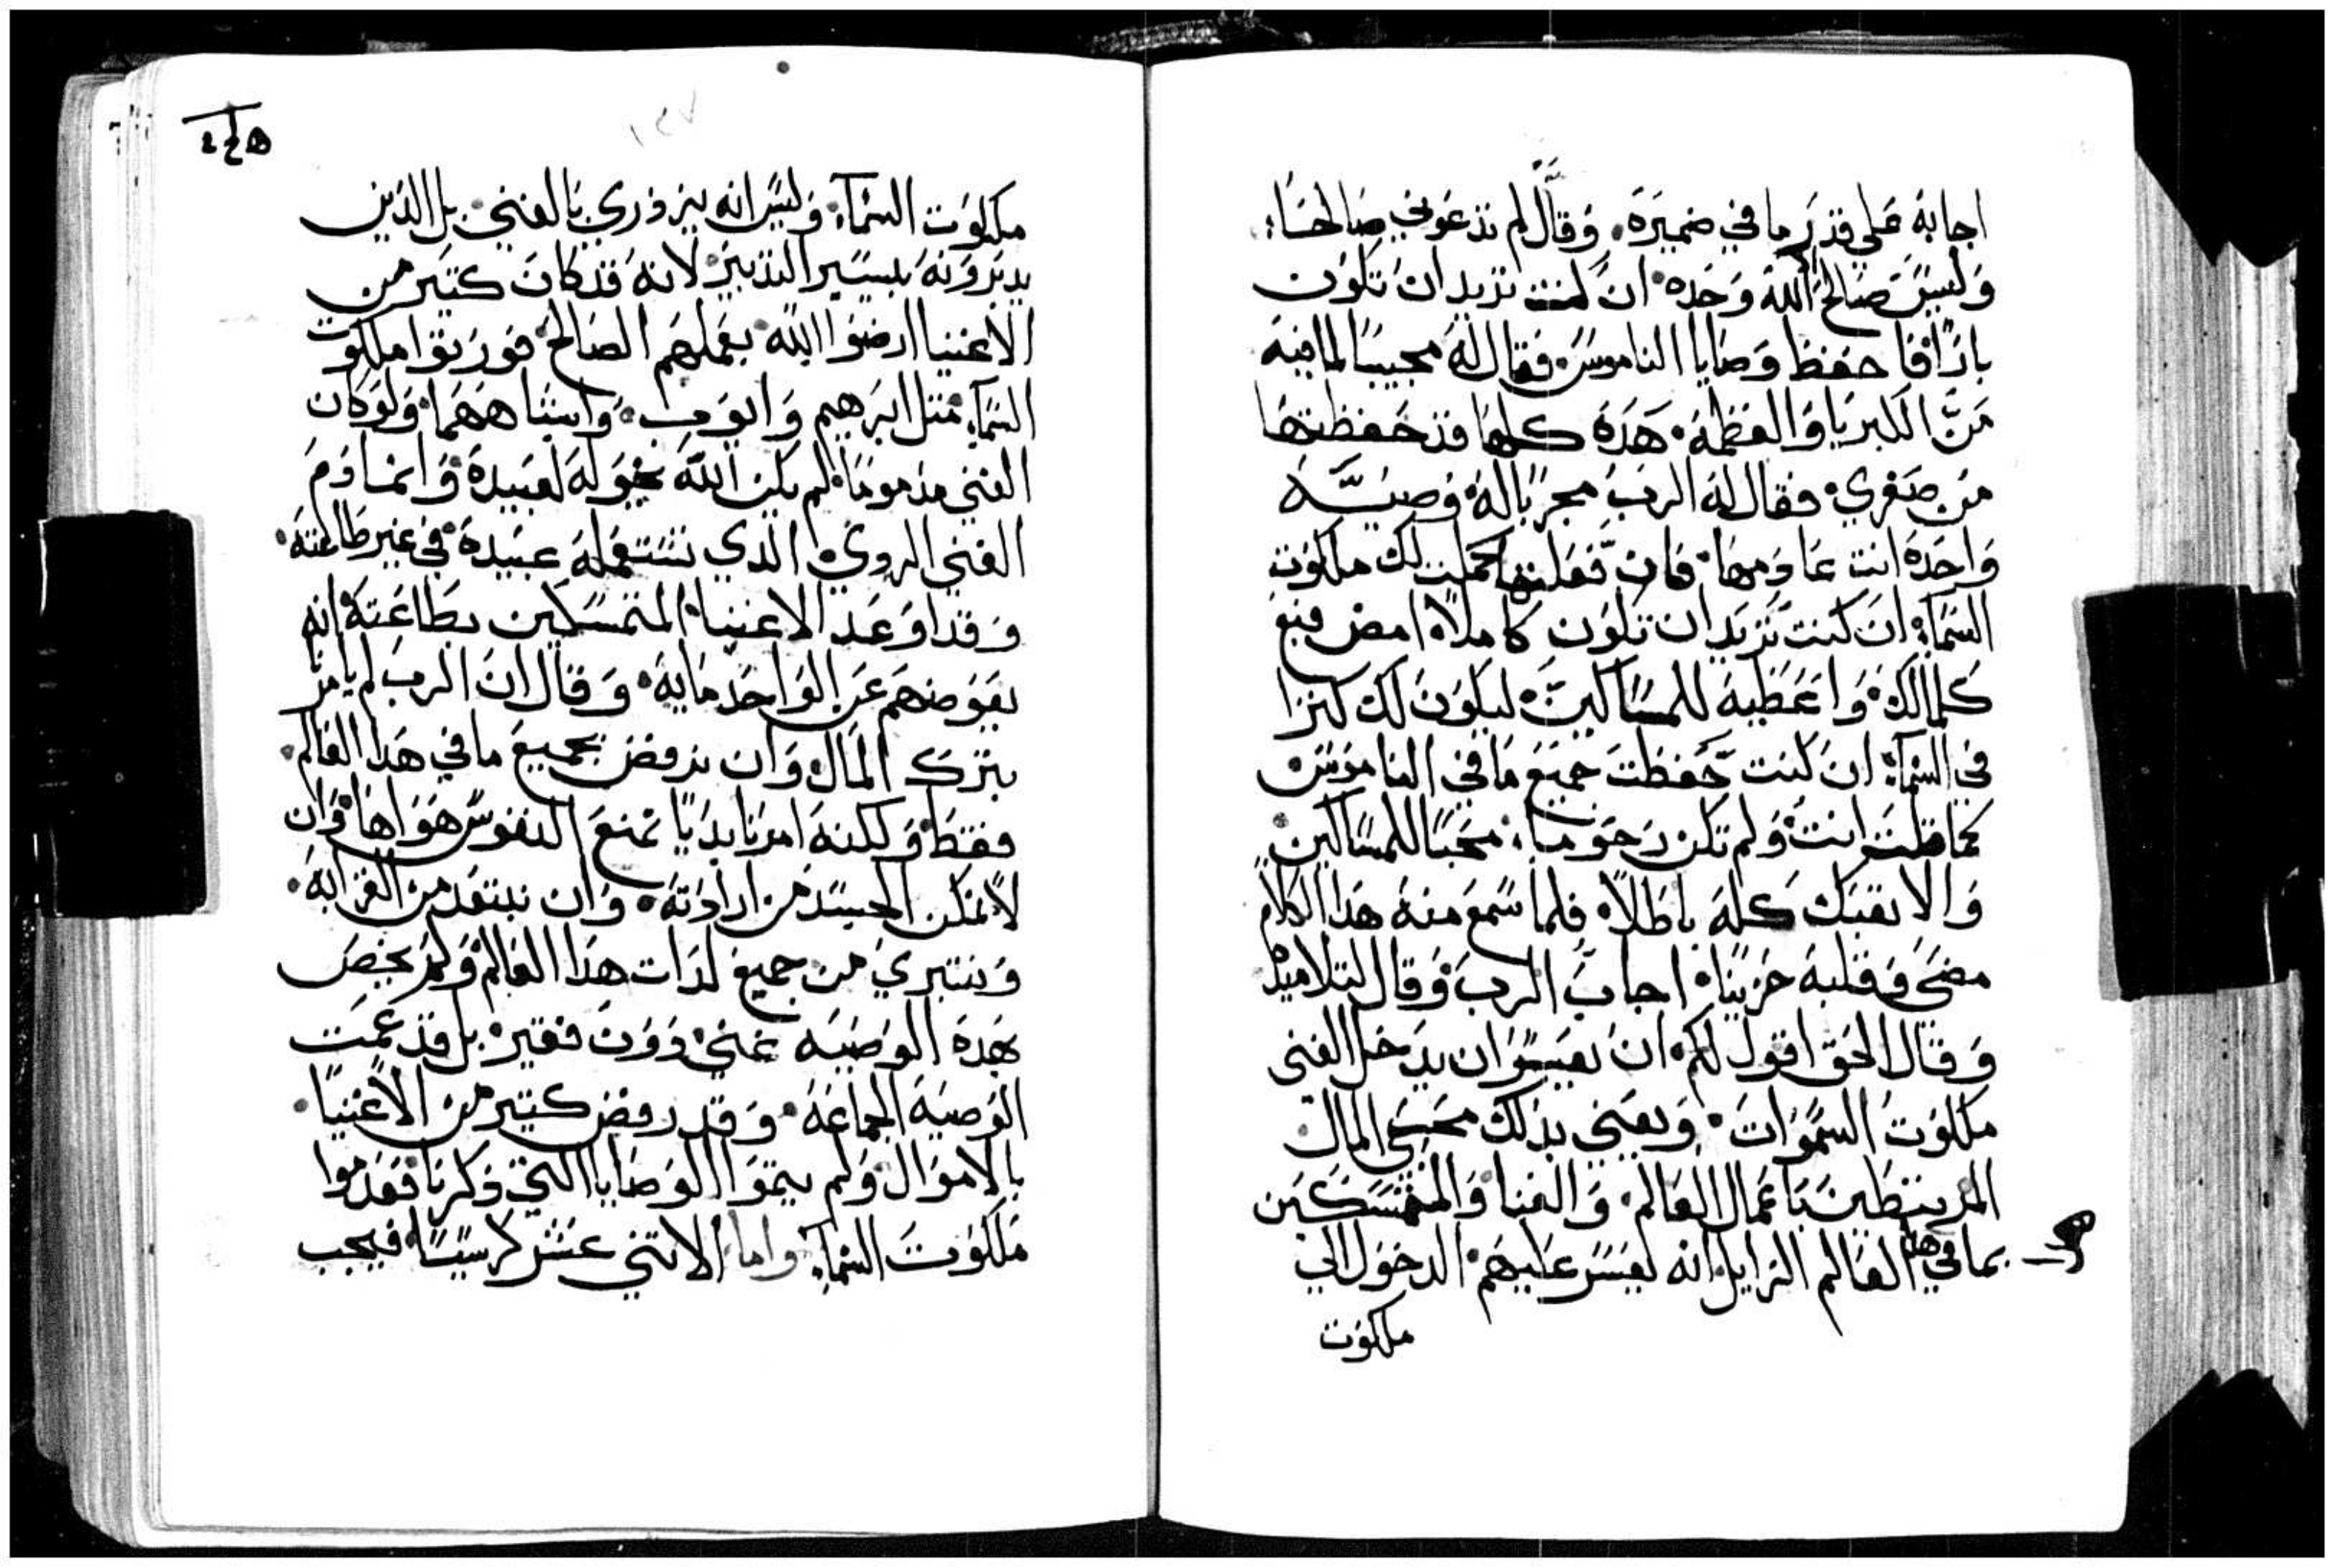 اجابه على قدر ما في ضميره. وقال لم تدعوني صالحاً؛
وليس صالح الله وحده. ان كنت تريد ان تكون
باراً فاحفظ وصايا الناموس. فقال له مجيبًا لما فيه
من الكبريا والعظمه. هذه كلها قد حفظتها
من صغري. فقال له الرب مجربًا له. وصيه
واحده انت عادمها. فان فعلتها كملت لك ملكوت
السمآء. ان كنت تريد ان تكون كاملاً. امض فبع
كلمالك. واعطيه للمساكين. ليكون لك كنزا
في السمآء. ان كنت حفظت جميع ما في الناموس.
كما قلت انت. ولم تكن رحوما. محبًا للمساكين.
والا تعبك كله باطلاً. فلما سمع منه هذا الكلام
مضى وقلبه حزينًا. اجاب الرب وقال لتلاميذه
وقال الحق اقول لكم. ان يعسر ان يدخل الغنى
ملكوت السموات. ويعني بذلك محبي المال
المرتبطين باعمال العالم. والغنا والمتمسكين
بما في هذا العالم الزايل. انه يعسر عليهم. الدخول الى
ملكوت
ملكوت السمآء. وليس انه يزدري بالغني. بل الذين
يدبرونه بيسير التدبير. لانه قد كان كتير من
الاغنيا ارضوا الله بعملهم الصالح. فورتوا ملكوت
السمآء. متل ابرهيم وايوب. واشباههما. ولو كان
الغني مذمومًا. لم يكن الله يخوله لعبيده. وانما ذم
الغني الردي الذي تستعمله عبيده. في غير طاعته.
وقد اوعد الاغنيا. المتمسكين بطاعته. انه
يعوضهم عن الواحد مايه. وقال ان الرب لم يامر
بترك المال. وان نرفض بجميع ما في هذا العالم.
فقط. ولكنه امرنا بديًا نمنع النفوس هواها. وان
لا نمكن الجسد من ارادته. وان نبتعد من القرابه.
ونتبري من جميع لذات هذا العالم. ولم يخص
بهذه الوصيه غني. دون فقير. بل قد عمت
الوصيه الجماعه. وقد رفض كتير من الاغنيا.
بالاموال. ولم يتموا الوصايا التي ذكرنا. فعدموا
ملكوت السمآء. واما الاتني عشر كرسيًا. فيجب